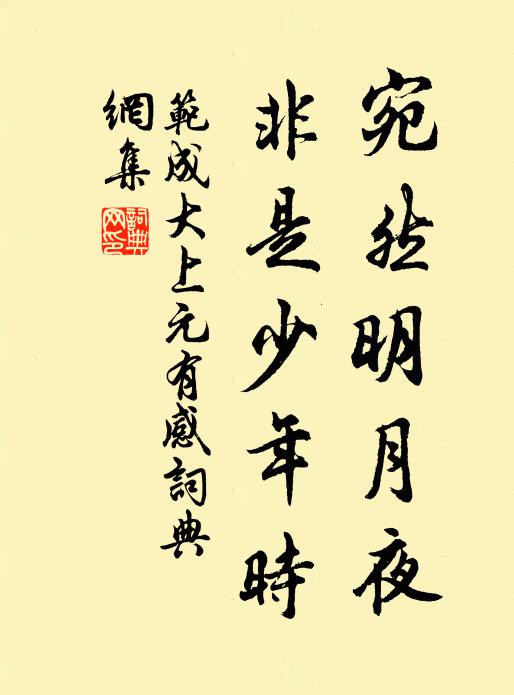 宛然明月夜
非是少年時
範成大上元有感詞典
網集
詞典
网印